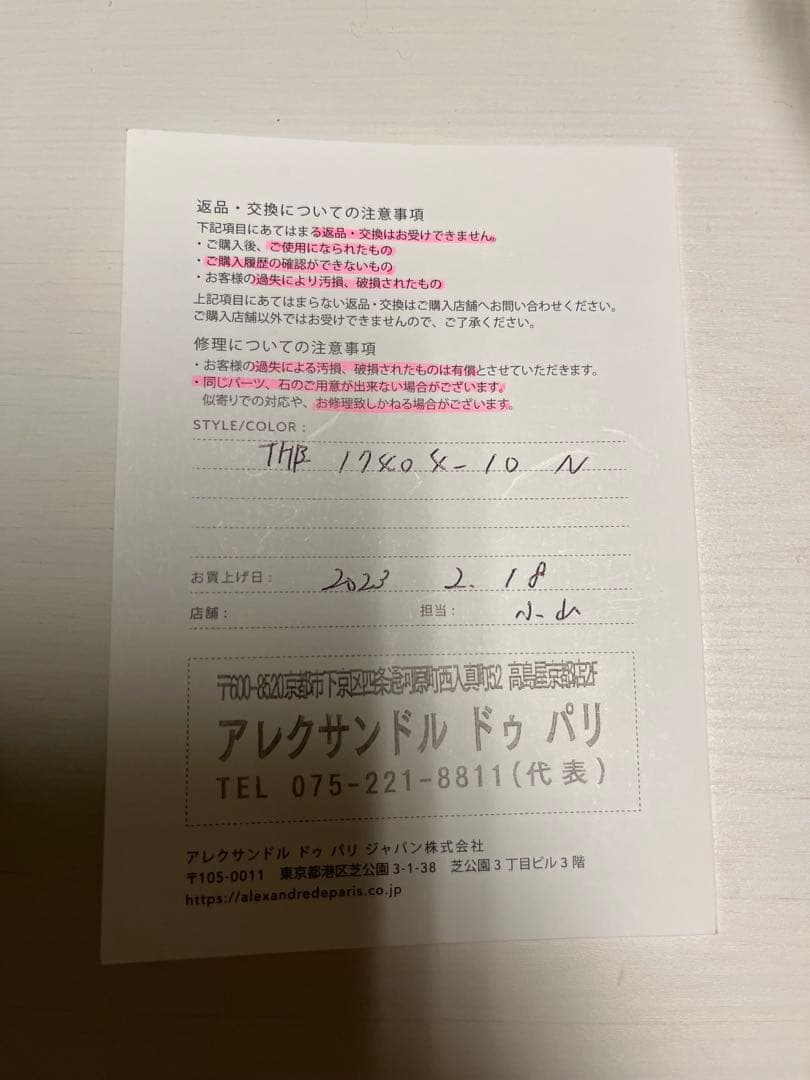 返品・交換についての注意事項
下記項目にあてはまる返品・交換はお受けできません。
・ご購入後、ご使用になられたもの
・ご購入履歴の確認ができないもの
・お客様の過失により汚損、破損されたもの
上記項目にあてはまらない返品・交換はご購入店舗へお問い合わせください。
ご購入店舗以外ではお受けできませんので、ご了承ください。
修理についての注意事項
・お客様の過失による汚損、破損されたものは有償とさせていただきます。
・同じパーツ、石のご用意が出来ない場合がございます。
似寄りでの対応や、お修理致しかねる場合がございます。
STYLE/COLOR :
THB 17404-10 N
お買上げ日： 2023 2. 18
店舗： 担当： 小山
〒600-8520京都市下京区四条通河原町西入真町52 高島屋京都店2F
アレクサンドル ドゥ パリ
TEL 075-221-8811(代表)
アレクサンドル ドゥ パリ ジャパン株式会社
〒105-0011 東京都港区芝公園 3-1-38 芝公園 3 丁目ビル 3 階
https://alexandredeparis.co.jp